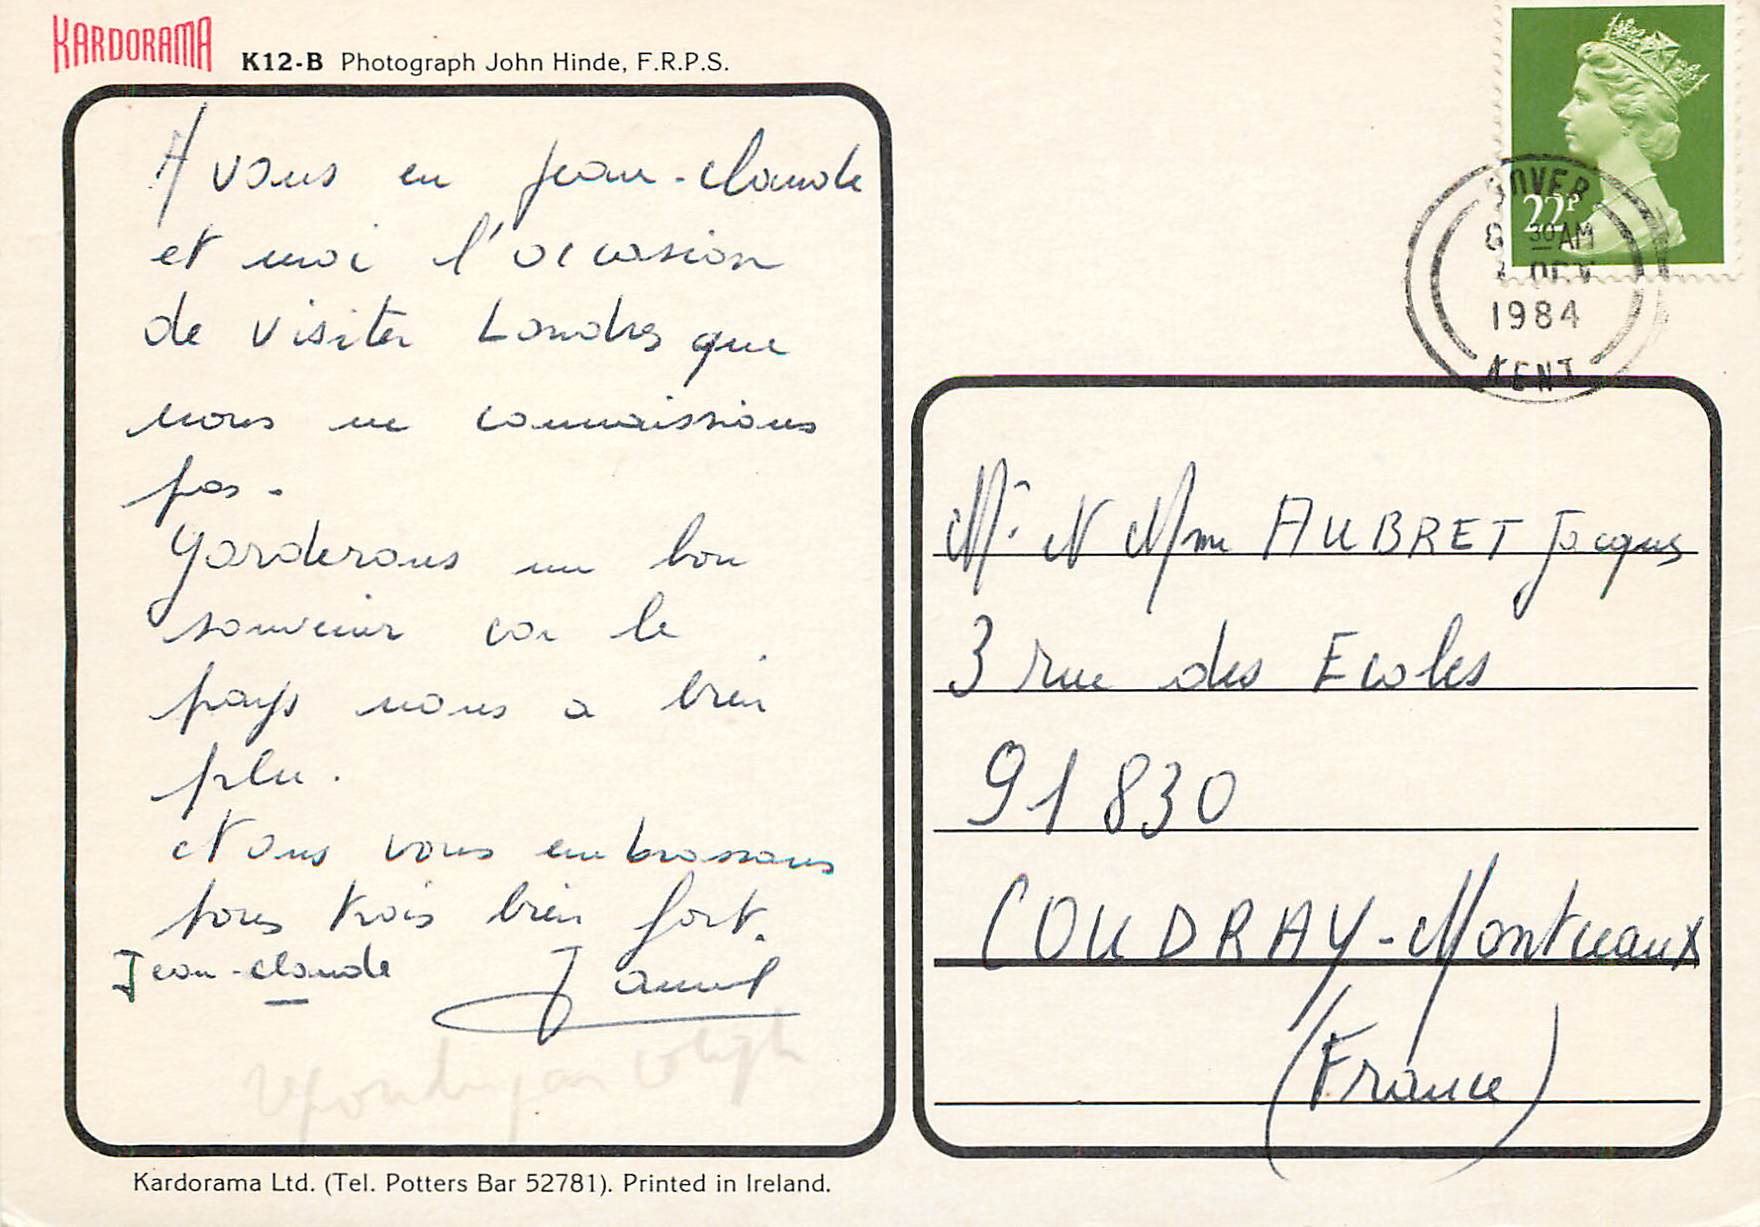 KARDORAMA
K12-B Photograph John Hinde, F.R.P.S.
Avons eu Jean-Claude
et moi l'occasion
de visiter Londres que
nous ne connaissions
pas.
Garderons un bon
souvenir car le
pays nous a bien
plu.
Nous vous embrassons
tous trois bien fort.
Jean-Claude
22P
DOVER
30AM
1984
KENT
Mr et Mme AUBRET Jacques
3 rue des Ecoles
91 830
COUDRAY-Montceaux
(France)
Kardorama Ltd. (Tel. Potters Bar 52781). Printed in Ireland.